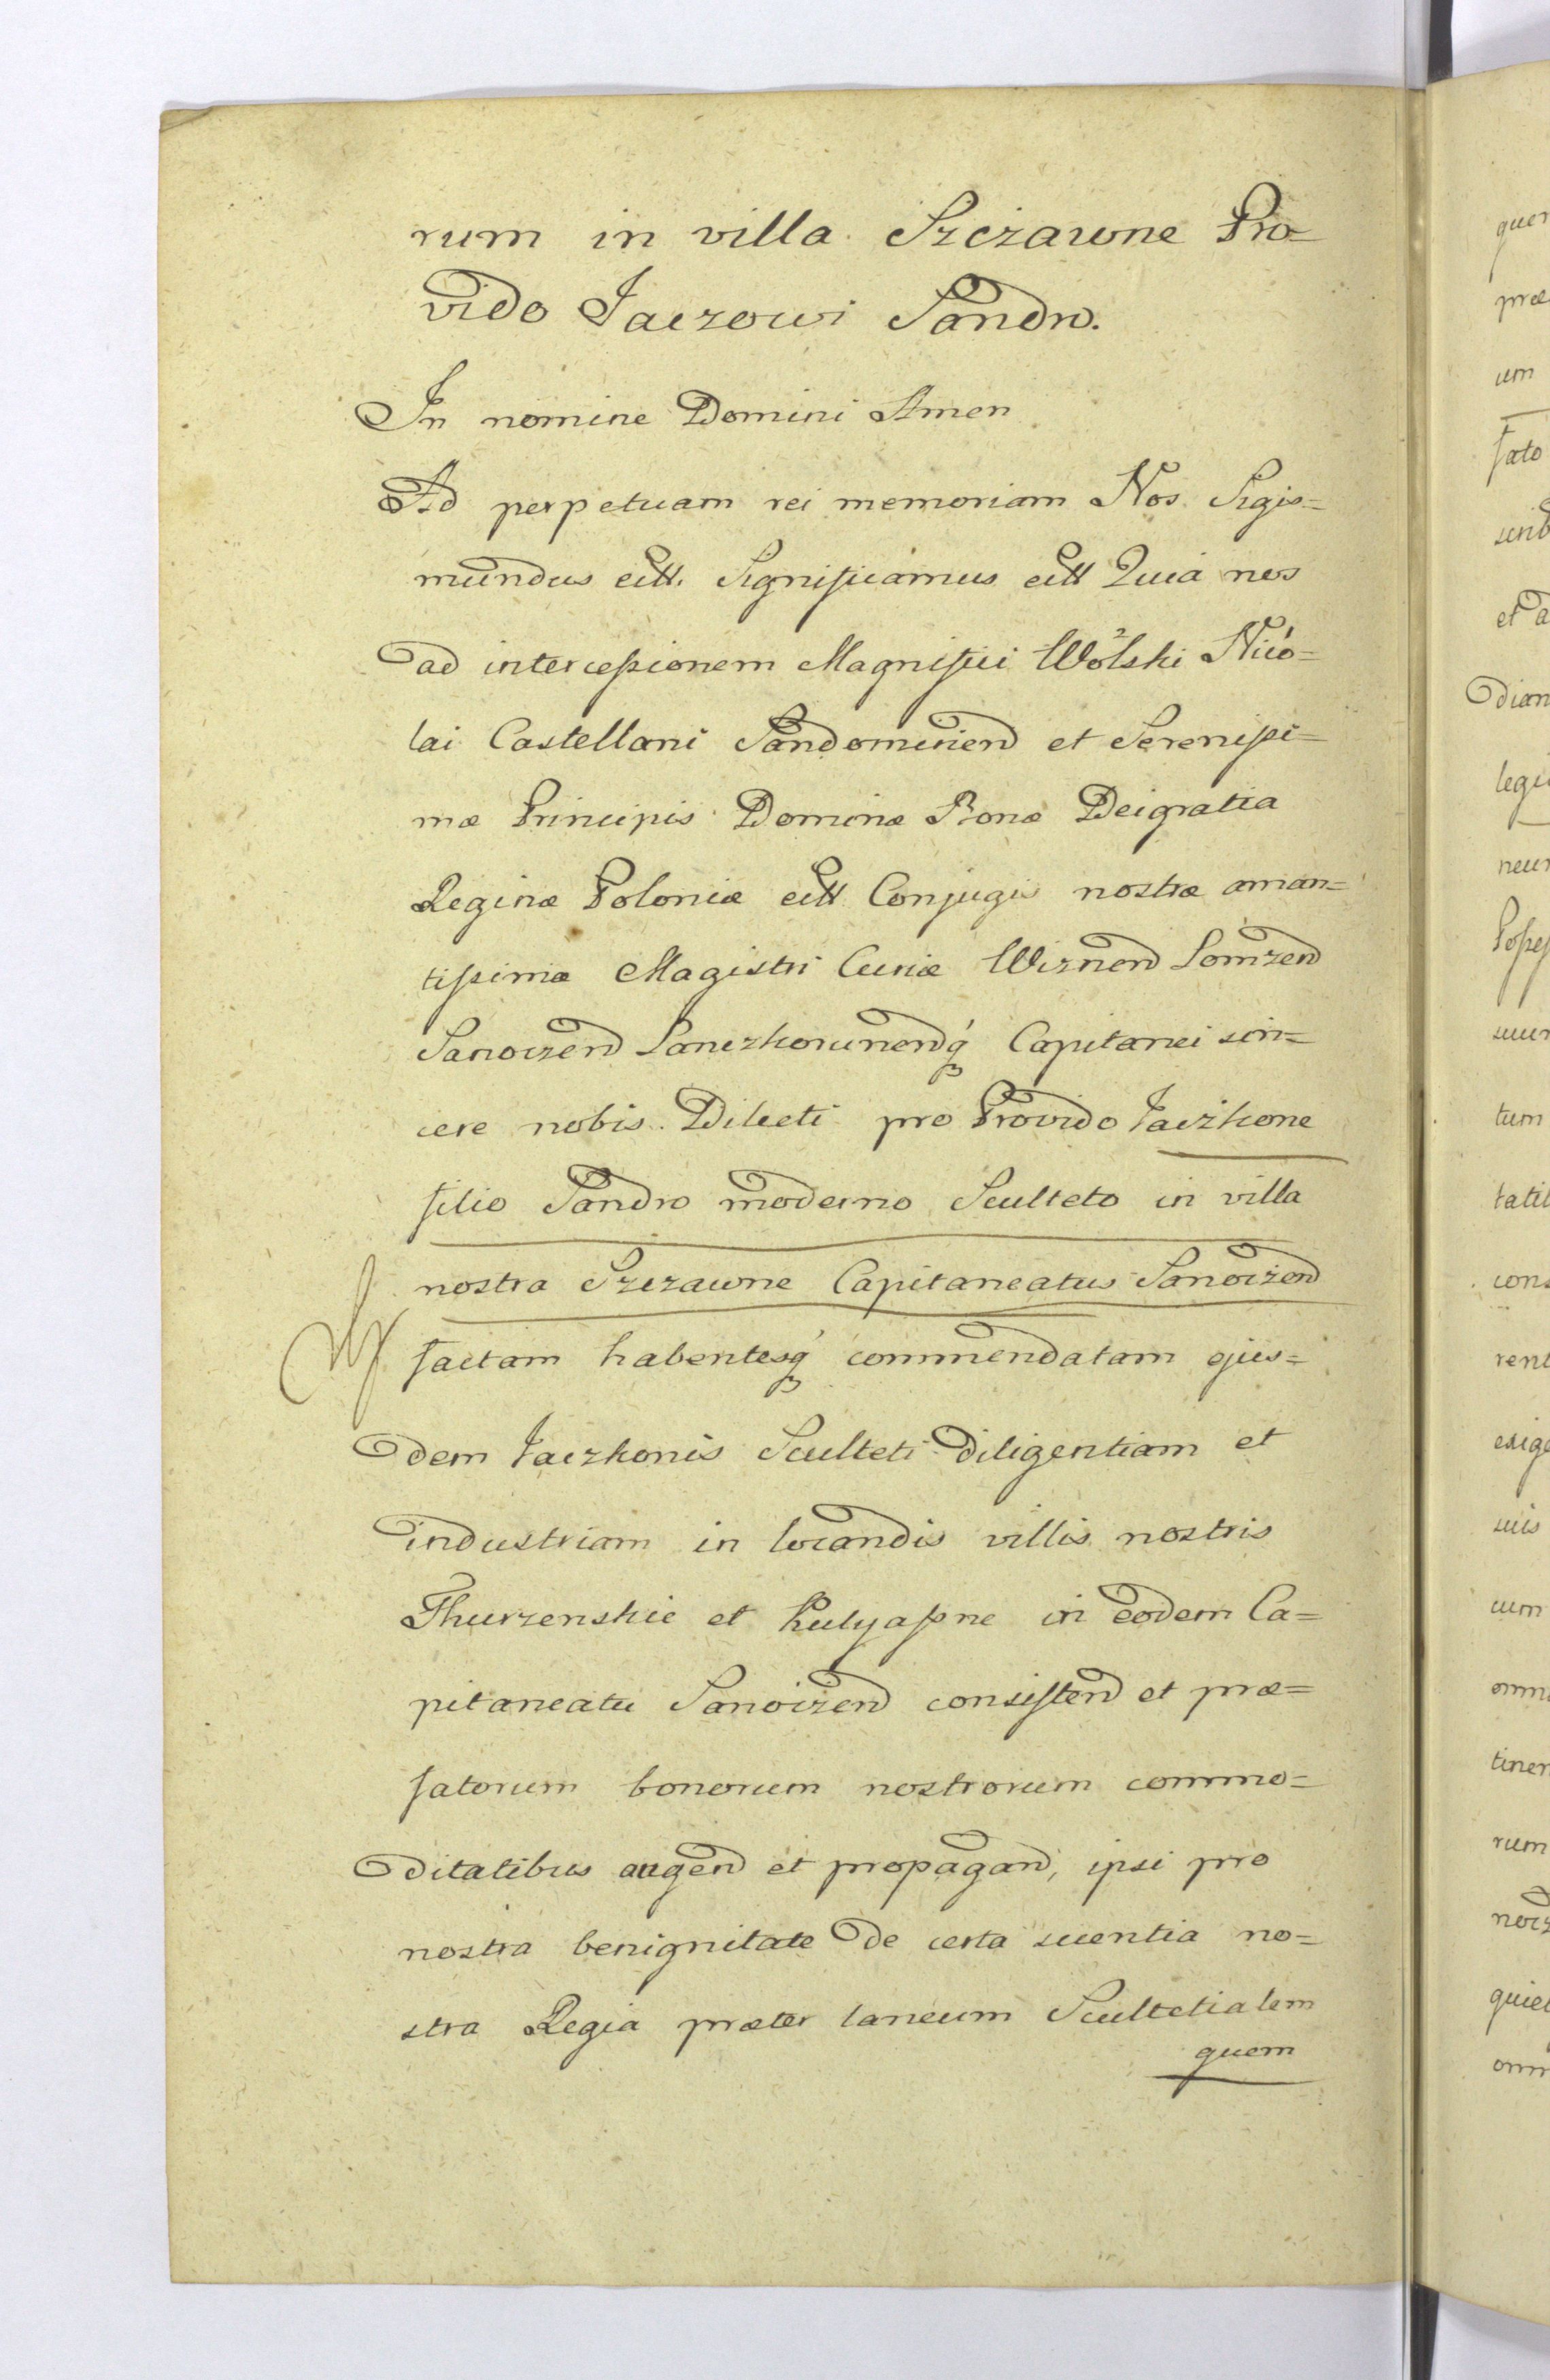 rum in villa Szczawne Pro=
vido Jaczowi Sandro.
In nomine Domini Amen
Ad perpetuam rei memoriam Nos Sigis=
mundus ectt. Significamus ectt Quia nos
ad intercessionem Magnifici Wolski Nico=
lai Castellani Sandomirien et Serenissi=
mæ Principis Dominæ Bonæ Dei gratia
Reginæ Poloniæ ectt Conjugis nostræ aman=
tissimæ Magistri Curiæ Wiznen Lomzen
Sanoczen Lanczkorunenq́ Capitanei sin=
cere nobis Dilecti pro Provido Jaczkone
filio Sandro moderno Sculteto in villa
nostra Szczawne Capitaneatus Sanoczen
factam habentesq́ commendatam ejus=
dem Jaczkonis Sculteti diligentiam et
industriam in locandis villis nostris
Thurzenskie et Kulyassne in eodem Ca=
pitaneatu Sanoczen consisten et præ=
fatorum bonorum nostrorum commo=
ditatibus augen et propagan, ipsi pro
nostra benignitate de certa scientia no=
stra Regia præter laneum Scultetialem
quem